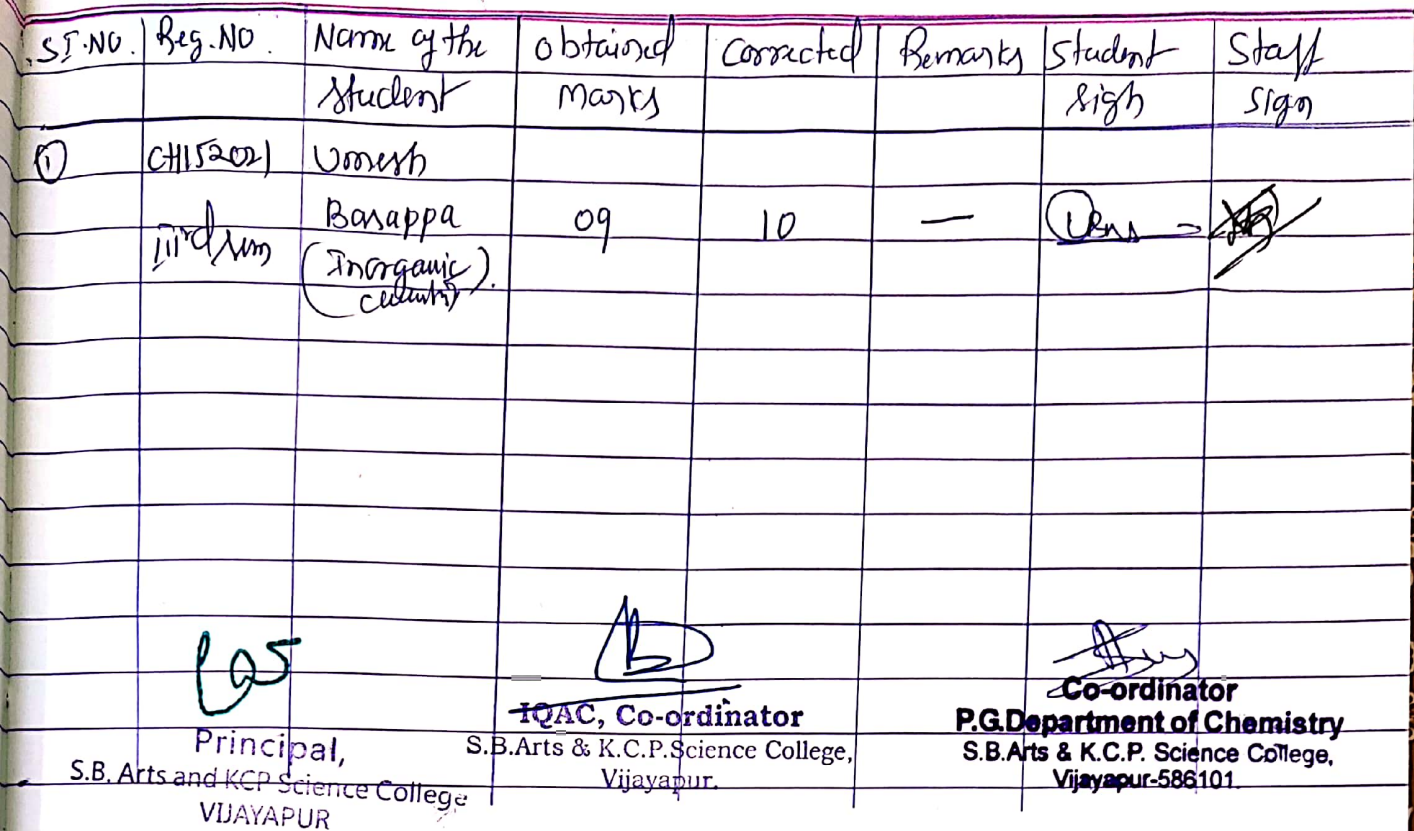 SI.NO. Reg.NO. Name of the Obtained Corrected Remarks Student Staff
Student Marks sign sign
① CH152021 Umesh
IIIrd sem Basappa 09 10 —
(Inorganic
).
Principal,
S.B. Arts and KCP Science College
VIJAYAPUR
IQAC, Co-ordinator
S.B.Arts & K.C.P.Science College,
Vijayapur.
Co-ordinator
P.G.Department of Chemistry
S.B.Arts & K.C.P. Science College,
Vijayapur-586101.